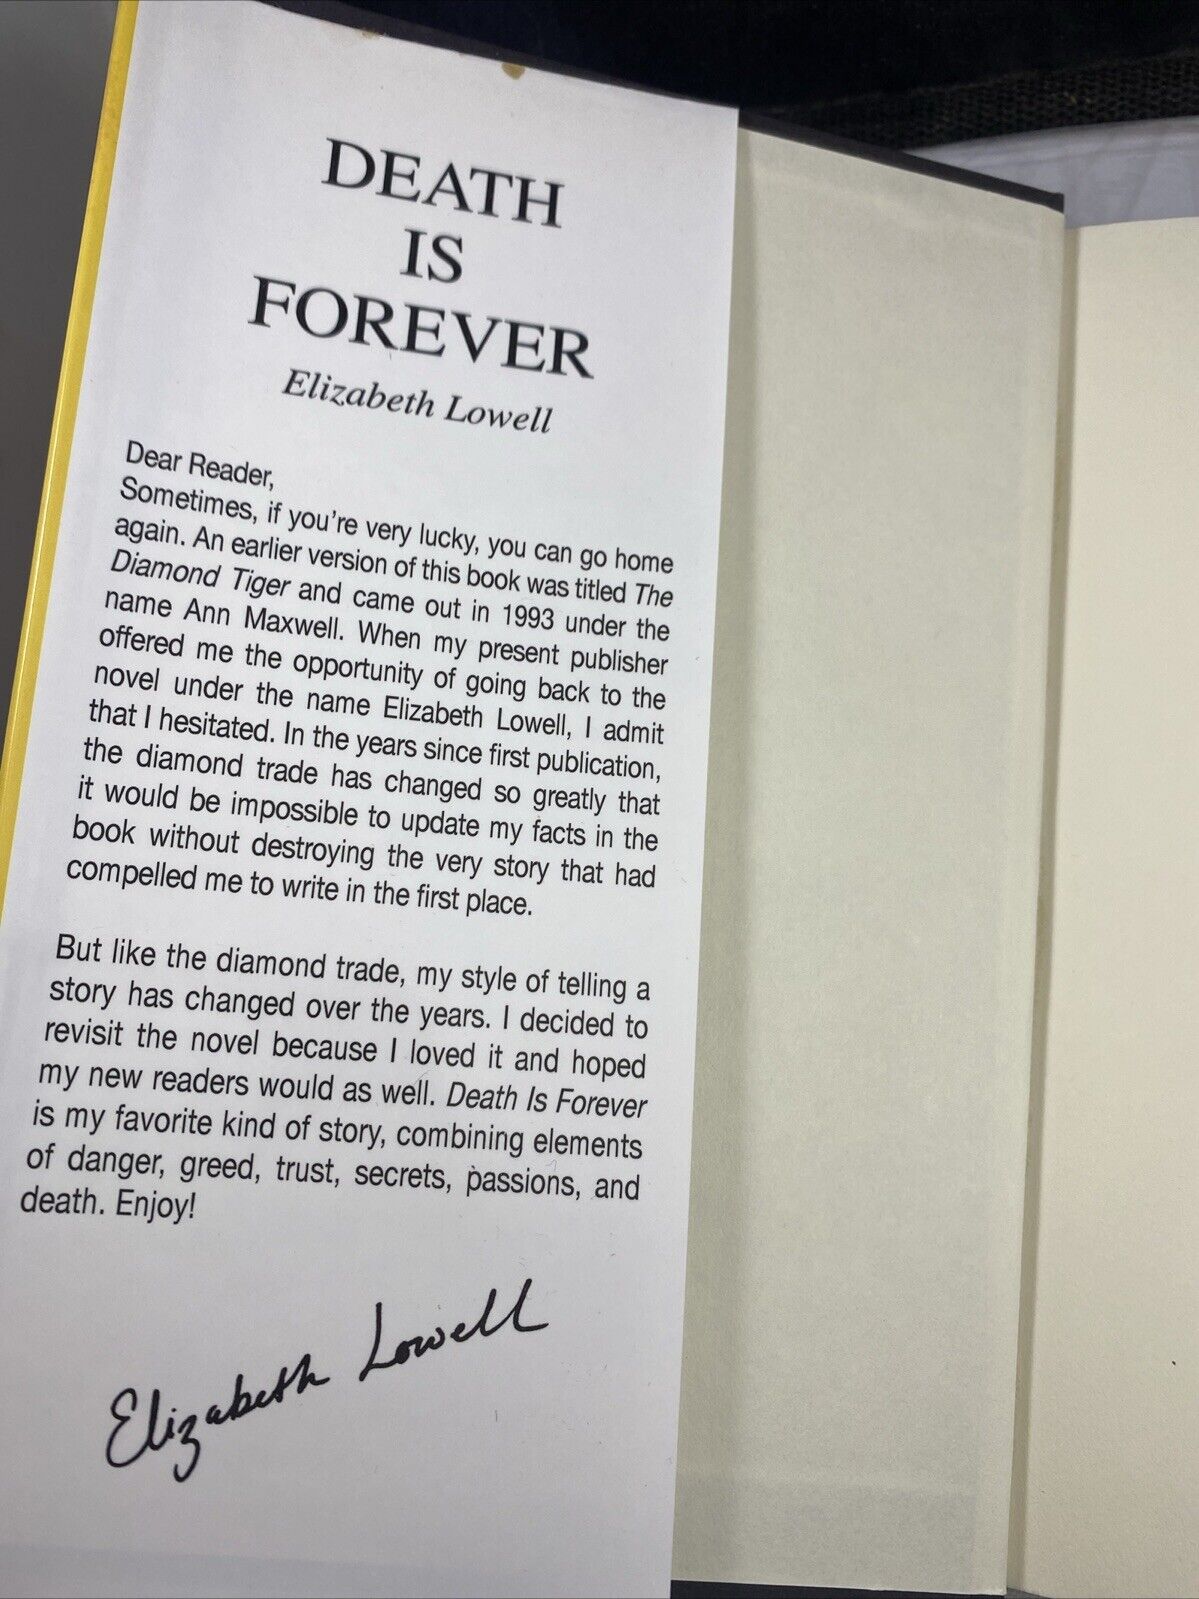 DEATH
IS
FOREVER
Elizabeth Lowell
Dear Reader,
Sometimes, if you're very lucky, you can go home
again. An earlier version of this book was titled The
Diamond Tiger and came out in 1993 under the
name Ann Maxwell. When my present publisher
offered me the opportunity of going back to the
novel under the name Elizabeth Lowell, I admit
that I hesitated. In the years since first publication,
the diamond trade has changed so greatly that
it would be impossible to update my facts in the
book without destroying the very story that had
compelled me to write in the first place.
But like the diamond trade, my style of telling a
story has changed over the years. I decided to
revisit the novel because I loved it and hoped
my new readers would as well. Death Is Forever
is my favorite kind of story, combining elements
of danger, greed, trust, secrets, passions, and
death. Enjoy!
Elizabeth Lowell